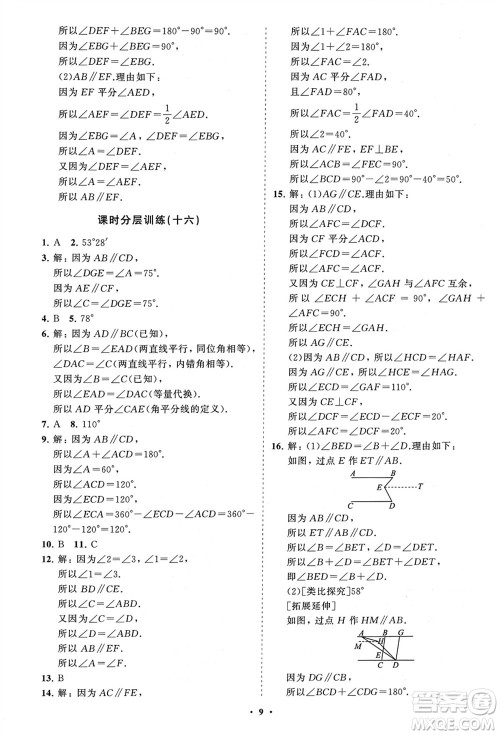 所以∠DEF+∠BEG=180°-90°=90°.
因为∠EBG=∠BEG.
所以∠A=∠DEF.
(2)AB∥EF.理由如下:
因为 EF 平分∠AED.
所以∠AEF=∠DEF=1/2∠AED.
因为∠EBG=∠A=∠EBG,
所以∠A=∠DEF.
又因为∠DEF=∠AEF.
所以∠A=∠AEF.
所以 AB∥EF.
课时分层训练(十六)
1. A 2. 53°28′
3. 解:因为 AB∥CD.
所以∠DGE=∠A=75°.
因为 AE∥CF,
所以∠C=∠DGE=75°.
4. B 5. 78°
6. 解:因为 AD∥BC(已知),
所以∠B=∠EAD(两直线平行,同位角相等),
∠DAC=∠C(两直线平行,内错角相等).
又因为∠B=∠C(已知),
所以∠EAD=∠DAC(等量代换).
所以 AD 平分∠CAE(角平分线的定义).
7. A 8. 110°
9. 解:因为 AB∥CD.
所以∠A+∠ACD=180°.
因为∠A=∠D=110°.
所以∠ACD=70°.
所以∠ECD=360°-∠ACD-∠ACE=360°-
70°-170°=120°.
10. B 11. C
12. 解:因为∠2=∠3,∠1=∠2.
所以∠1=∠3.
所以 BD∥CE.
所以∠C=∠ABD.
又因为∠C=∠D,
所以∠D=∠ABD.
所以∠A=∠F.
13. B
14. 解:因为 AC∥FE,
所以∠1+∠FAC=180°.
又因为∠1+∠2=180°.
所以∠FAC=∠2.
因为 AC 平分∠FAD,
且∠FAD=80°,
所以∠FAC=1/2∠FAD=40°.
所以∠2=40°.
因为 AC∥FE,EF⊥BE,
所以∠ACB=∠FEB=90°.
所以∠BCD=90°-∠2=90°-40°=50°.
15. 解:(1)AG∥CE.理由如下:
因为 AB∥CD,
所以∠AFC=∠DCF.
因为 CF 平分∠DCE,
所以∠ECF=∠DCF.
所以∠AFC=∠ECF.
又因为 CE⊥CF,∠GAH 与∠AFC 互余,
所以∠AFC+∠AHC=90°,∠GAH+∠AFC
=90°.
所以∠GAH=∠AHC.
所以 AG∥CE.
(2)因为 AB∥CD,所以∠HCD=∠HAF.
所以∠ECD+∠HCE=∠GAF+∠HAG.
因为 AG∥CE,所以∠HCE=∠HAG.
所以∠ECD=∠GAF=110°.
又因为 CE⊥CF,
所以∠DCF=∠ECD-∠ECF=20°.
所以∠AFC=∠DCF=20°.
16. 解:(1)∠BED=∠B+∠D.理由如下:
如图,过点 E 作 ET∥AB.
A B
E T
C D
因为 AB∥CD,
所以 ET∥CD∥AB.
所以∠B=∠BET,∠D=∠DET.
所以∠BED=∠BET+∠DET=∠B+∠D.
即∠BED=∠B+∠D.
(2)[类比探究]58°
[拓展延伸]
如图,过点 H 作 HM∥AB.
A B G
M H
C D
因为 DG∥CF,
所以∠BCD+∠CDG=180°.
· 9 ·